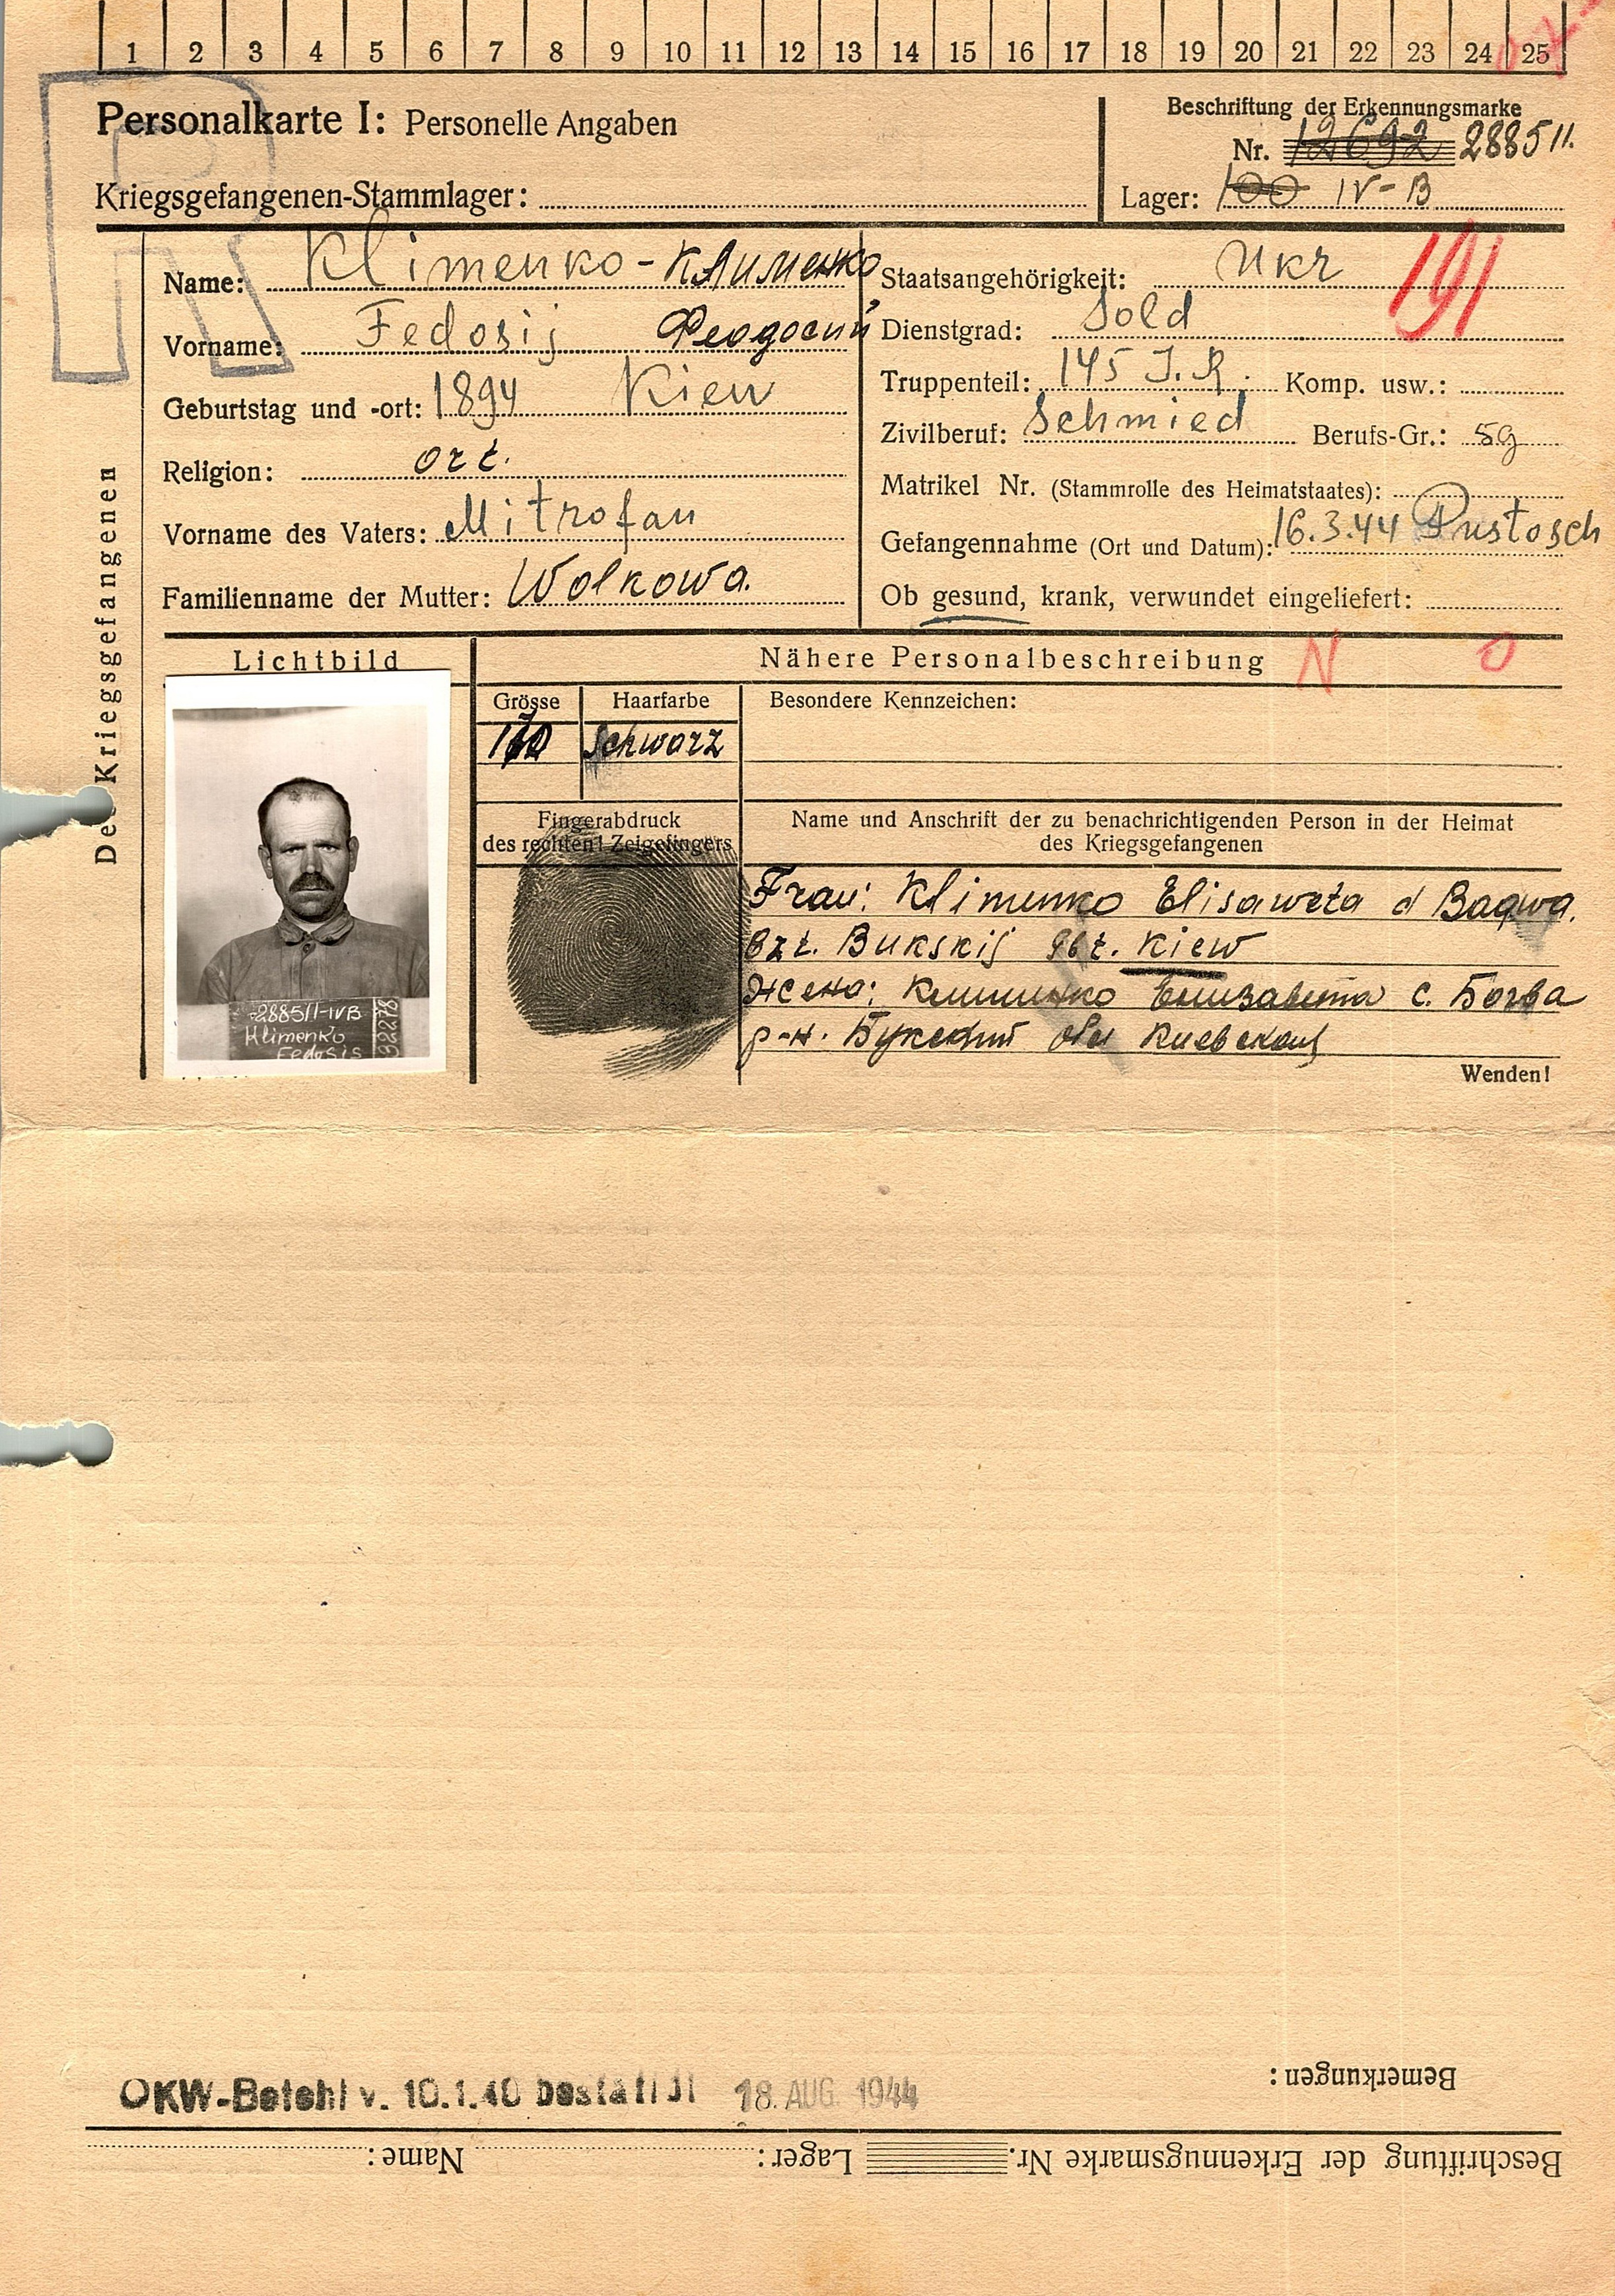 1 2 3 4 5 6 7 8 9 10 11 12 13 14 15 16 17 18 19 20 21 22 23 24 25
Personalkarte I: Personelle Angaben
Beschriftung der Erkennungsmarke
Nr. 12692 288511.
Kriegsgefangenen-Stammlager:
Lager: 100 IV-B
Des Kriegsgefangenen
Name: Klimenko - Клименко
Vorname: Fedosij Феодосий
Geburtstag und -ort: 1894 Kiew
Religion: ort.
Vorname des Vaters: Mitrofan
Familienname der Mutter: Wolkowa.
Staatsangehörigkeit: Ukr 191
Dienstgrad: Sold
Truppenteil: 145 J.R. Komp. usw.:
Zivilberuf: Schmied Berufs-Gr.: 5g
Matrikel Nr. (Stammrolle des Heimatstaates):
Gefangennahme (Ort und Datum): 16.3.44 Pustosch
Ob gesund, krank, verwundet eingeliefert:
Lichtbild
Nähere Personalbeschreibung N O
Grösse Haarfarbe Besondere Kennzeichen:
schwarz
Fingerabdruck
des rechten! Zeigefingers
Name und Anschrift der zu benachrichtigenden Person in der Heimat
des Kriegsgefangenen
Frau: Klimenko Elisaweta d Bagwa.
Bzt. Bukskij Gbt. Kiew
Жена: Клименко Елизавета с. Богва
р-н. Букский обл Киевской
Wenden!
288511-IVB
Klimenko
Fedosis
32278
OKW-Befehl v. 10.1.40 bestätigt 18. AUG. 1944
Bemerkungen:
Beschriftung der Erkennugsmarke Nr. Lager: Name: